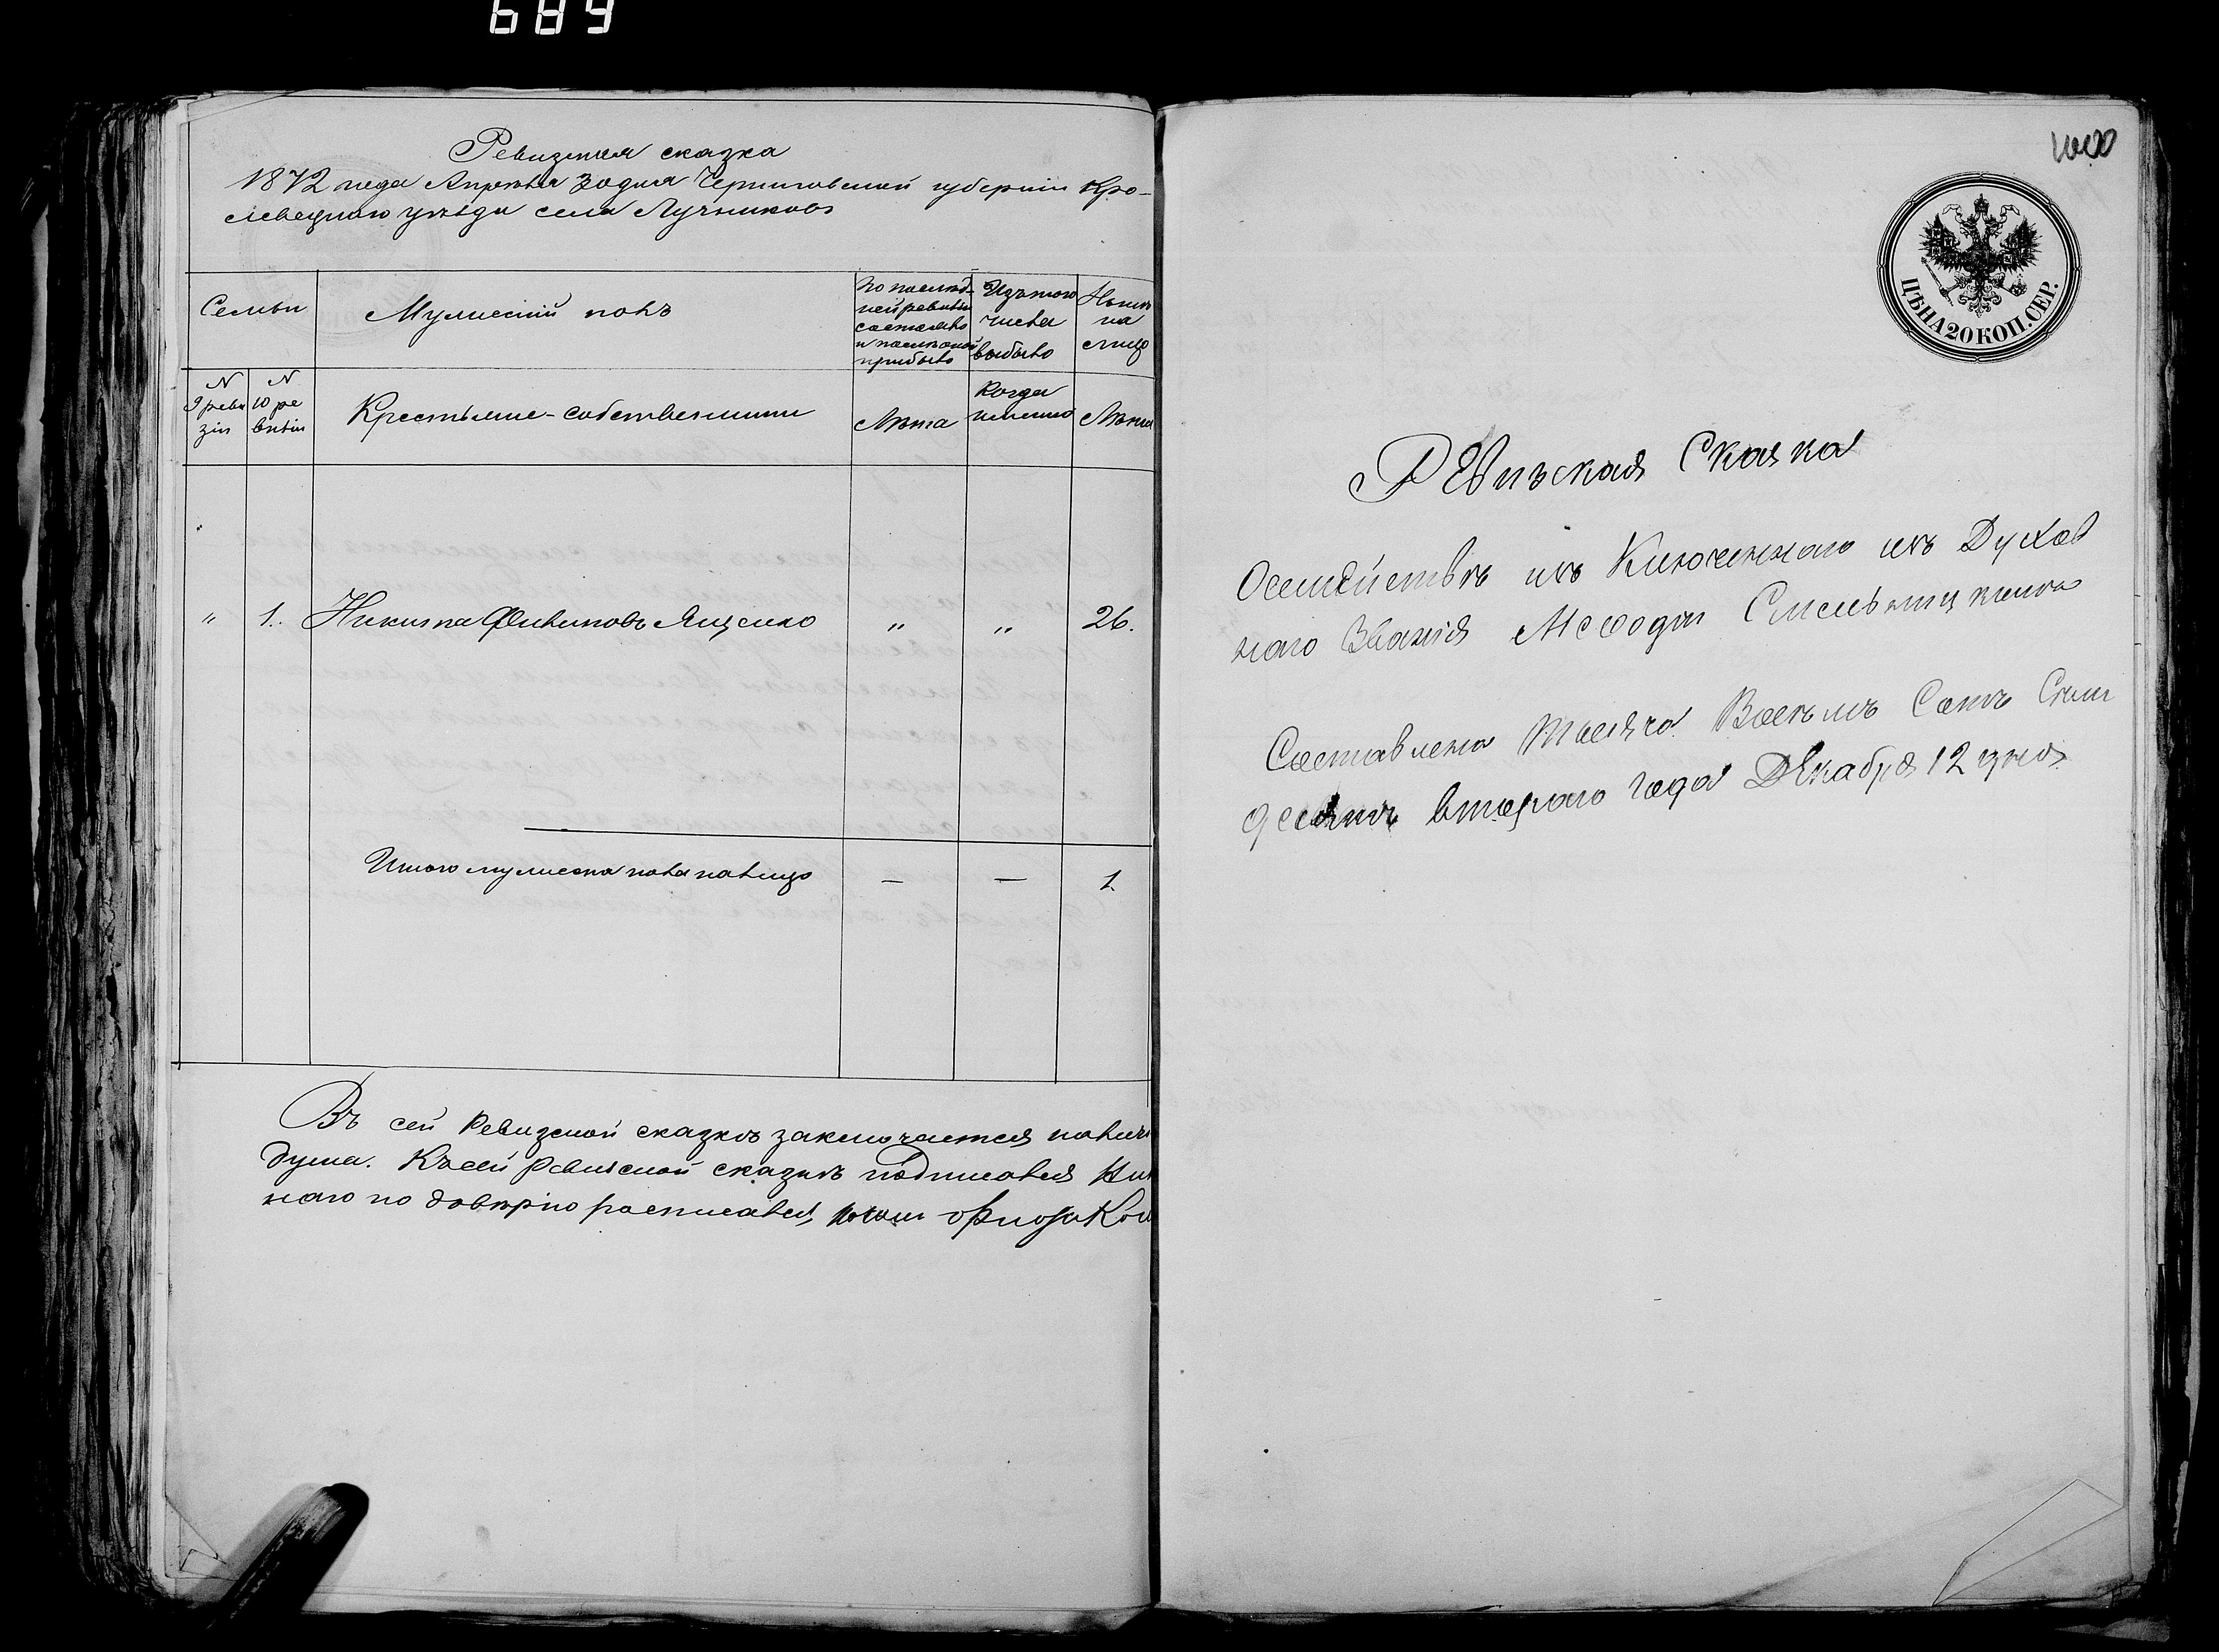 689
Ревизская сказка
1872 года Апреля 30 дня Черниговской губернии Кро-
левецкаго уѣзда села Лучникова
Семьи
Мужескій полъ
По послѣд-
ней ревизіи
состояло
и послѣ оной
прибыло
Изъ того
числа
выбыло
Нынѣ
на
лицо
N
9 реви
зіи
N
10 ре
визіи
Крестьяне-собственники
Лѣта
Когда
именно
Лѣта
" 1. Никита Филиповъ Ященко " " 26.
Итого мужеска пола налицо — — 1
Въ сей Ревизской сказкѣ заключается налиц
душа. Къ сей Ревизской сказкѣ подписался
наго по довѣрію росписался
ЦѢНА 20 КОП. СЕР.
РЕвизская Сказка
Осемействѣ изъ Ключеннаго изъ Духов
наго Званія Мефодія
Составлена тысяча Восемъ Сотъ Семи
десятъ втораго года ДЕкабря 12 дня